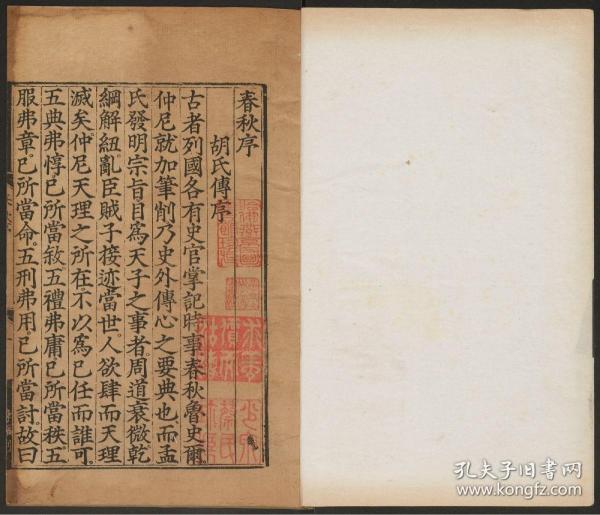 春秋序
胡氏傳序
古者列國各有史官掌記時事春秋魯史爾
仲尼就加筆削乃史外傳心之要典也而孟
氏發明宗旨目爲天子之事者周道衰微乾
綱解紐亂臣賊子接迹當世人欲肆而天理
滅矣仲尼天理之所在不以爲已任而誰可
五典弗惇已所當敘五禮弗庸已所當秩五
服弗章已所當命五刑弗用已所當討故曰
孔夫子旧书网
www.kongfz.com